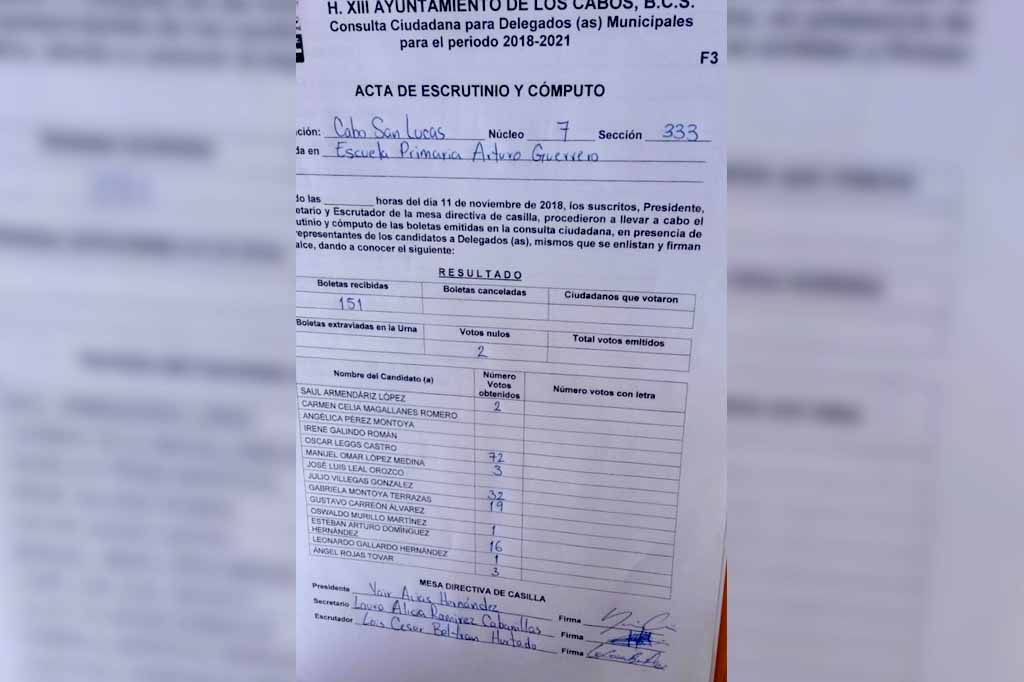 H. XIII AYUNTAMIENTO DE LOS CABOS, B.C.S.
Consulta Ciudadana para Delegados (as) Municipales
para el periodo 2018-2021
F3
ACTA DE ESCRUTINIO Y CÓMPUTO
ción: Cabo San Lucas Núcleo 7 Sección 333
da en Escuela Primaria Arturo Guerrero
do las ________ horas del dia 11 de noviembre de 2018, los suscritos, Presidente,
etario y Escrutador de la mesa directiva de casilla, procedieron a llevar a cabo el
utinio y cómputo de las boletas emitidas en la consulta ciudadana, en presencia de
representantes de los candidatos a Delegados (as), mismos que se enlistan y firman
alce, dando a conocer el siguiente:
RESULTADO
Boletas recibidas Boletas canceladas Ciudadanos que votaron
151
Boletas extraviadas en la Urna Votos nulos Total votos emitidos
2
Nombre del Candidato (a) Número Votos obtenidos Número votos con letra
SAUL ARMENDÁRIZ LÓPEZ 2
CARMEN CELIA MAGALLANES ROMERO
ANGÉLICA PÉREZ MONTOYA
IRENE GALINDO ROMÁN
OSCAR LEGGS CASTRO 72
MANUEL OMAR LÓPEZ MEDINA 3
JOSÉ LUIS LEAL OROZCO
JULIO VILLEGAS GONZALEZ 32
GABRIELA MONTOYA TERRAZAS 19
GUSTAVO CARREÓN ALVAREZ
OSWALDO MURILLO MARTÍNEZ 1
ESTEBAN ARTURO DOMÍNGUEZ HERNÁNDEZ 16
LEONARDO GALLARDO HERNÁNDEZ 1
ÁNGEL ROJAS TOVAR 3
MESA DIRECTIVA DE CASILLA
Presidente Yair Arias Hernández Firma
Secretario Laura Alicia Ramirez Cabanillas Firma
Escrutador Luis Cesar Beltran Hurtado Firma